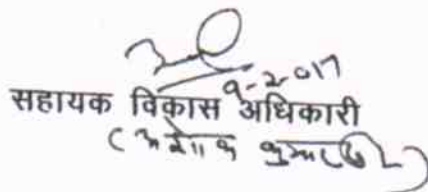 9-2-017
सहायक विकास अधिकारी
(अशोक कुमार